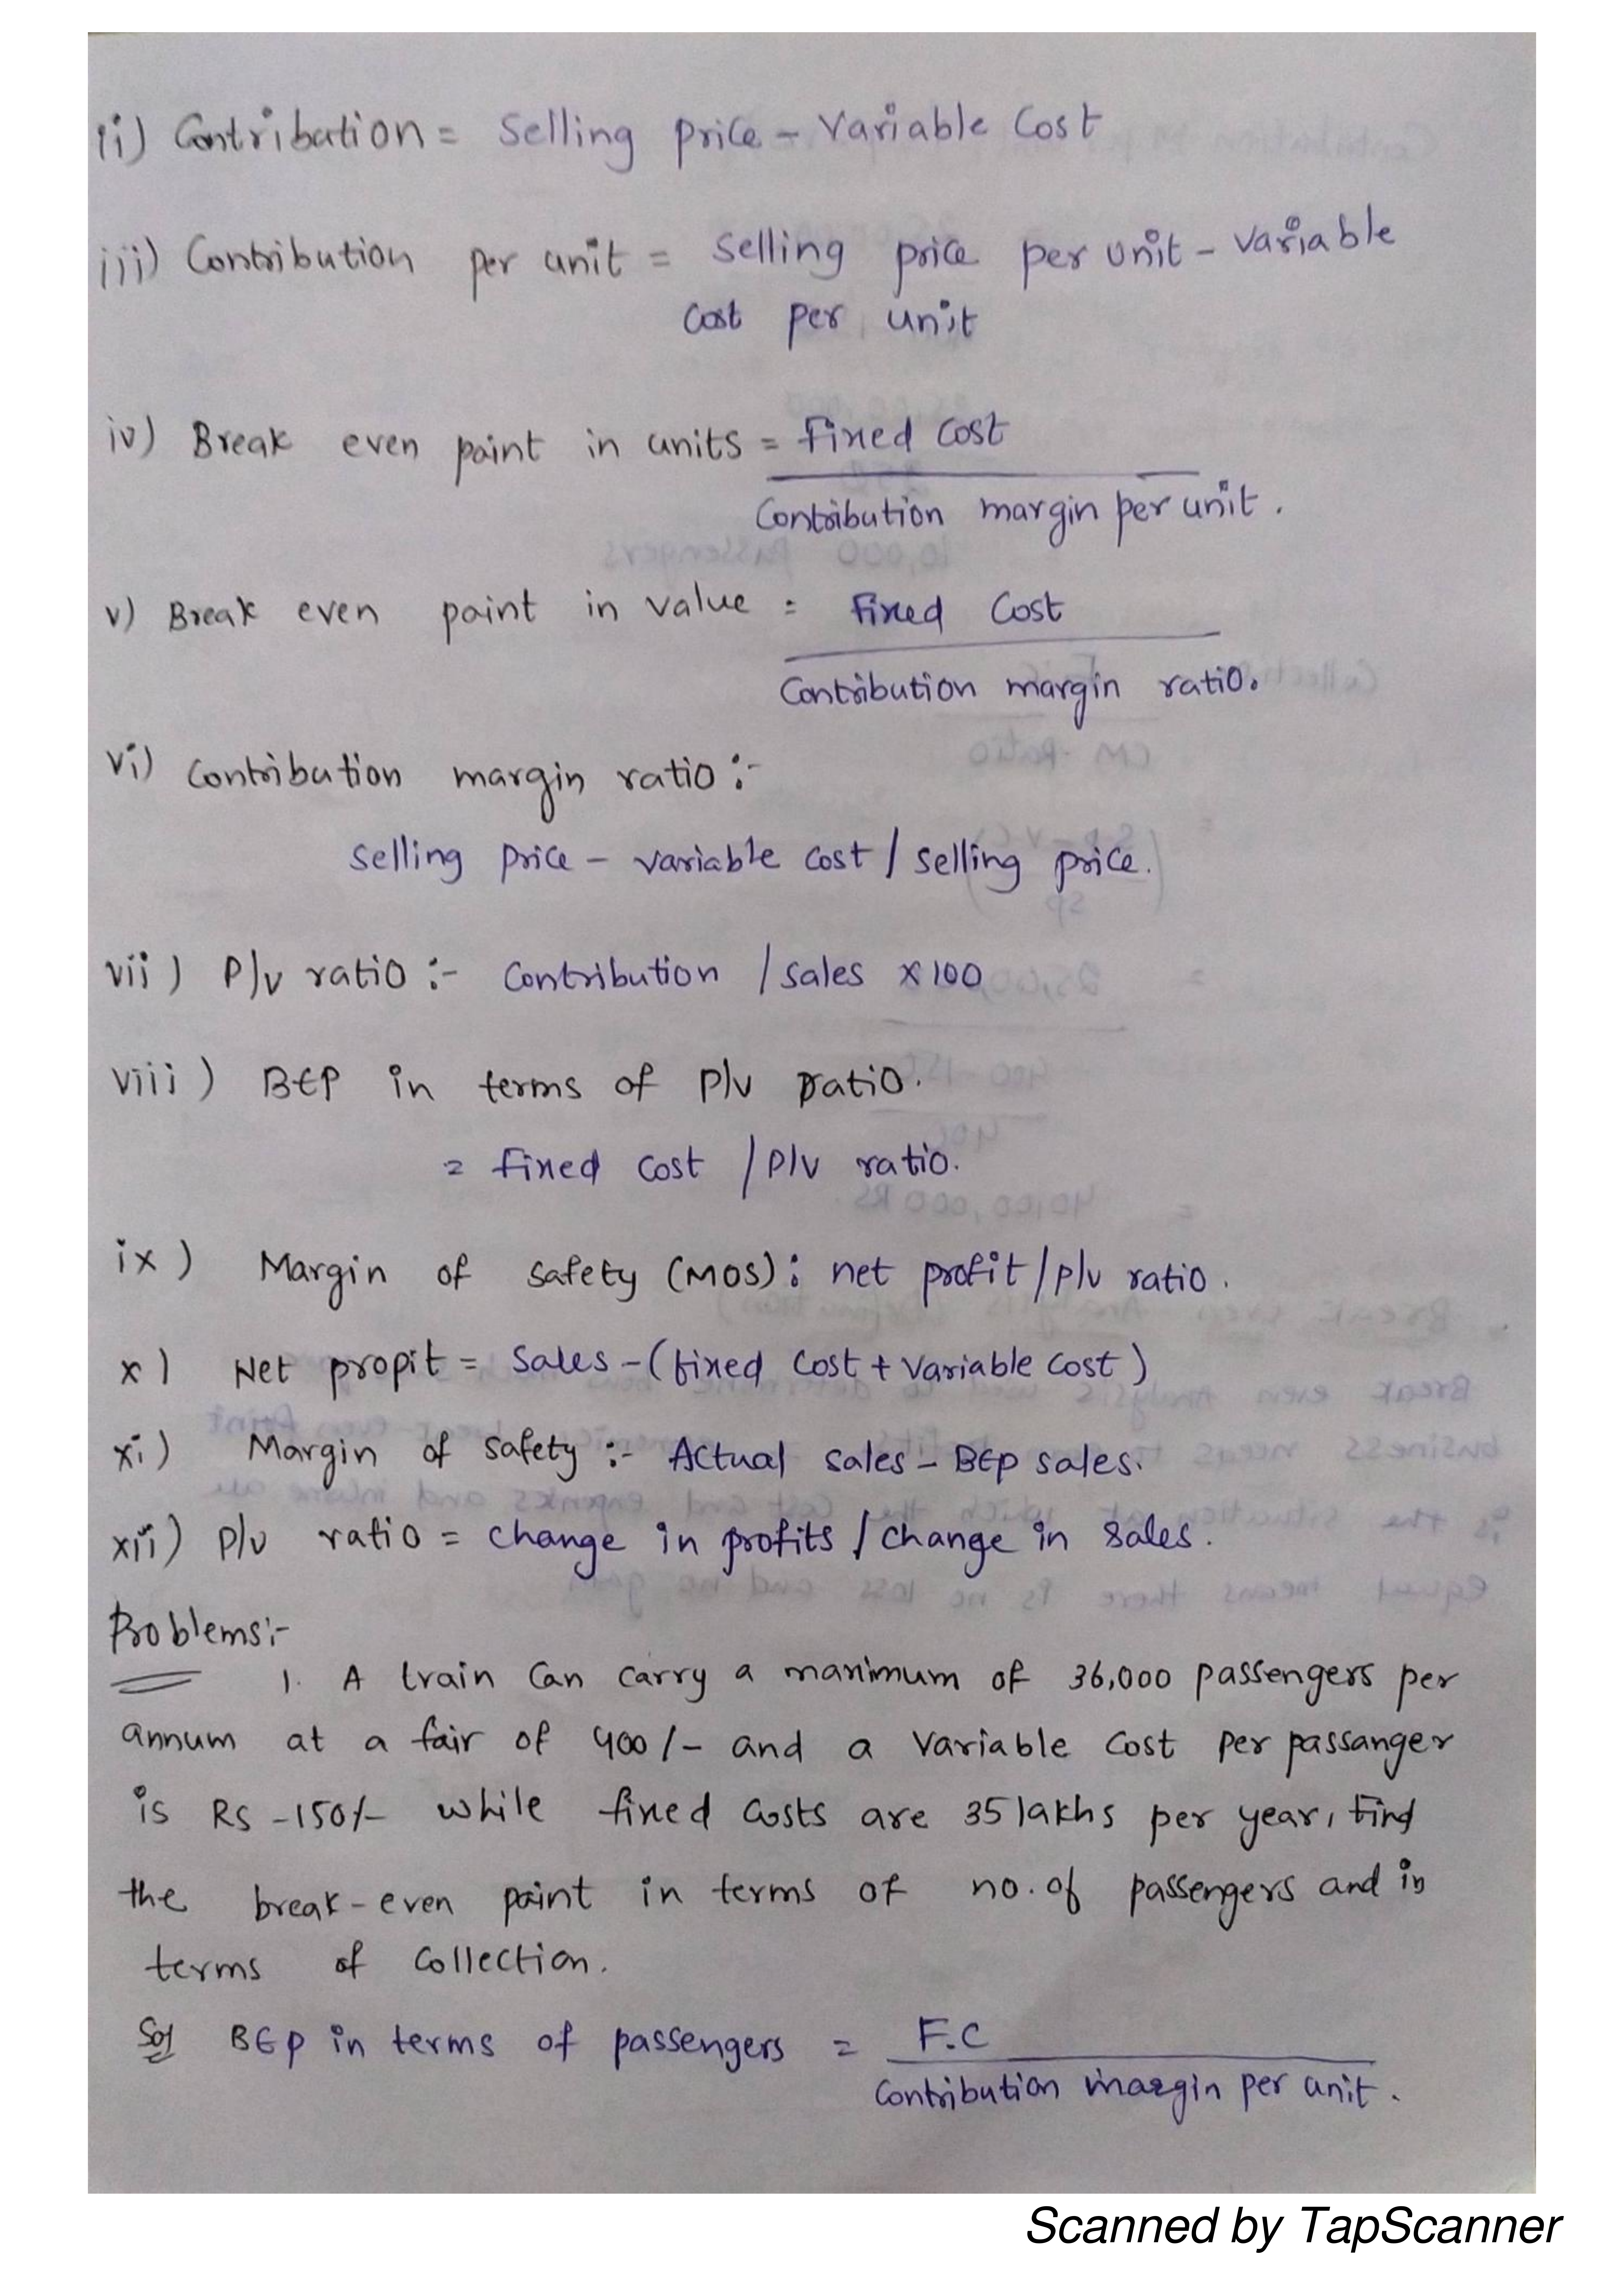 ii) Contribution = Selling price - Variable Cost
iii) Contribution per unit = Selling price per unit - Variable
Cost per unit
iv) Break even point in units = Fixed Cost
Contribution margin per unit.
v) Break even point in value = Fixed Cost
Contribution margin ratio.
vi) Contribution margin ratio :-
Selling Price - Variable Cost / Selling price.
vii) P/v ratio :- Contribution / Sales x 100
viii) BEP in terms of P/v ratio.
= fixed Cost / P/v ratio.
ix) Margin of safety (MOS) : net profit / p/v ratio.
x) Net propit = Sales - (fixed Cost + Variable Cost)
xi) Margin of Safety :- Actual Sales - BEP sales.
xii) P/v ratio = Change in profits / Change in Sales.
Problems :-
1. A train Can Carry a maximum of 36,000 passengers per
annum at a fair of 400/- and a Variable Cost Per passanger
is RS -150/- while fixed Costs are 35 lakhs per year, Find
the break-even point in terms of no. of passengers and in
terms of Collection.
Sol BEP in terms of passengers = F.C
Contribution margin per unit.
Scanned by TapScanner